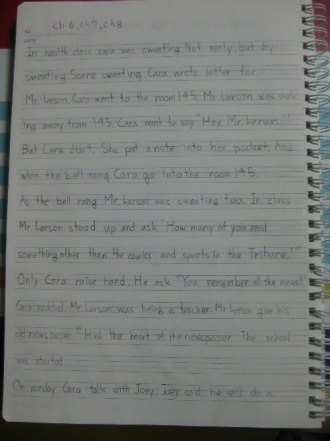 ch 6, ch 7, ch 8
In health class cara was sweating. Not really, but dry
sweating. Scare sweating. Cara wrote letter for
Mr. larson. Cara went to the room 145. Mr. Larson was walk
ing away from 145. Cara want to say "Hey Mr. Larson."
But Cara didn't. She put a note into her pocket. And
when the bell rang Cara go into the room 145.
As the bell rang Mr. Larson was sweating too. In class
Mr. Larson stood up and ask "How many of you read
something other than the comics and sports in the Tribune."
Only Cara raise hand. He ask "You remember all the news?"
Cara nodded. Mr. Larson was being a teacher. Mr. Larson give his
old newspaper. "Find the heart of the newspaper. The school
was started.
On Cara talk with Joey. Joey said he will do a